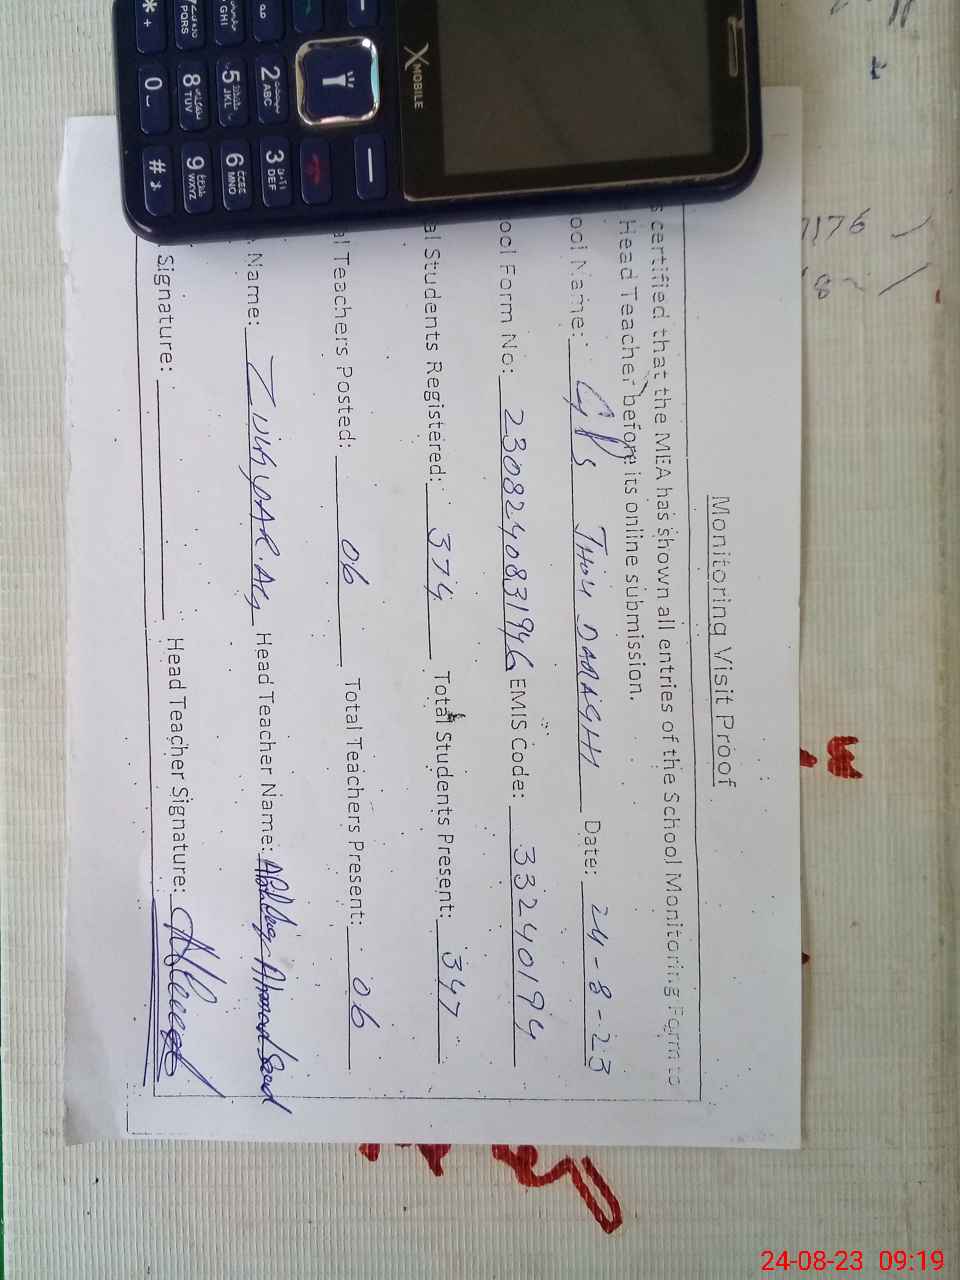 Monitoring Visit Proof
s certified that the MEA has shown all entries of the School Monitoring Form to
Head Teacher before its online submission.
ool Name: GPS THUL DARAGHI Date: 24-8-23
ool Form No: 2308240831946 EMIS Code: 33240194
al Students Registered: 374 Total Students Present: 347
al Teachers Posted: 06 Total Teachers Present: 06
Name: Head Teacher Name: Ahmad Saeed
Signature: Head Teacher Signature:
XMOBILE
2 ABC
3 DEF
GHI
5 JKL
6 MNO
PQRS
8 TUV
9 WXYZ
* +
0
#
7176
24-08-23 09:19